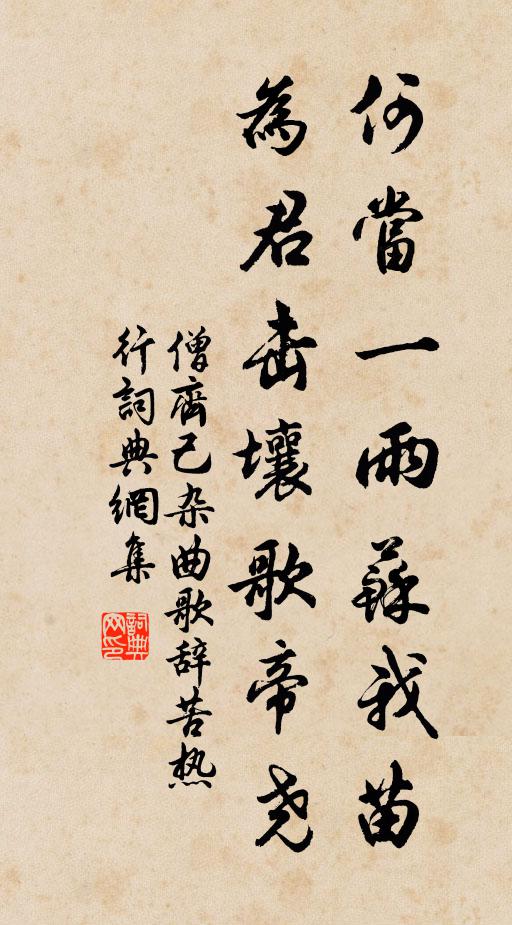 何當一雨蘇我苗
為君击壤歌帝尧
僧齊己杂曲歌辞苦热
行詞典網集
詞典网印